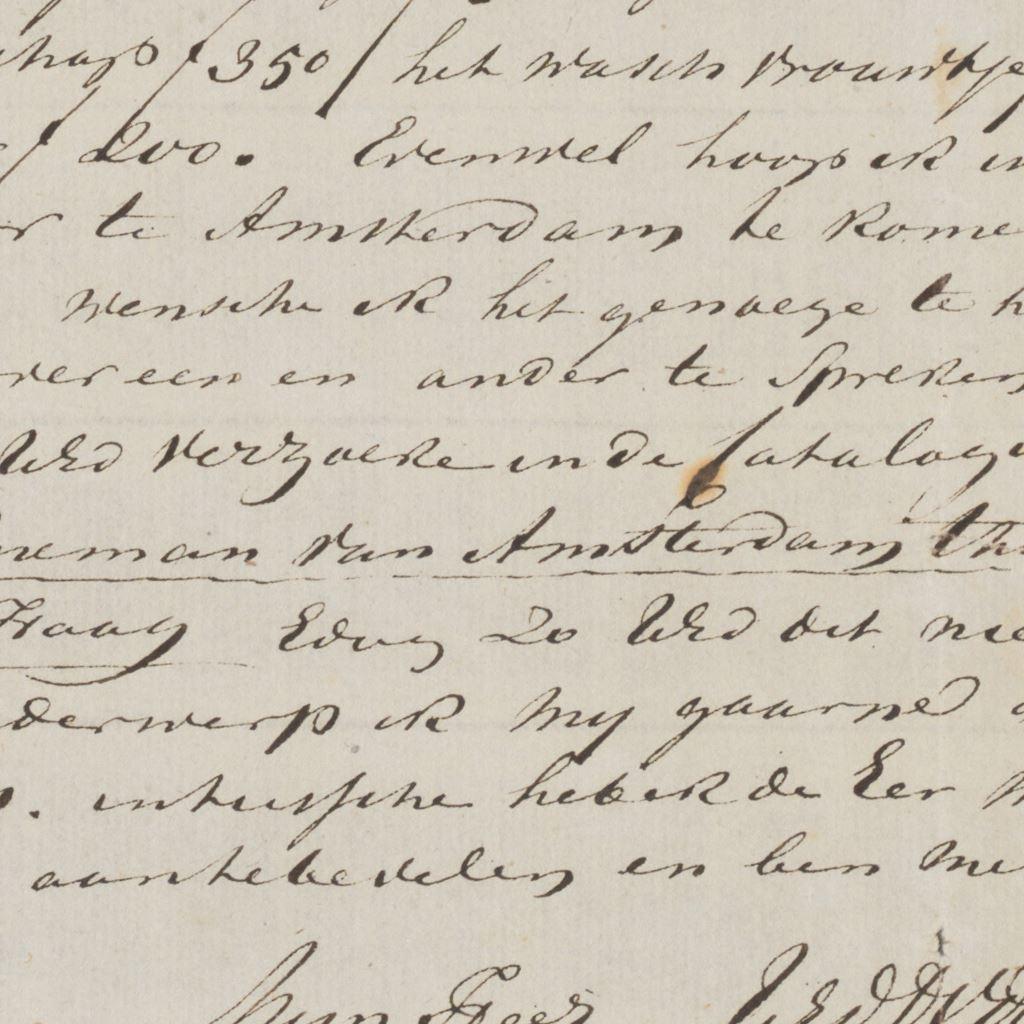 schap ƒ 350 / het wasch vrouwtje
ƒ 200. Evenwel hoop ik in
r te Amsterdam te kome
wensche ik het genoege te h
ver een en ander te spreken
UEd verzoeke in de Catalogu
neman van Amsterdam th
Haag Edog zo UEd dit nie
derwerp ik my gaarne
. intussche heb ik de Eer m
aantebevelen en ben me
Myn Heer UEd